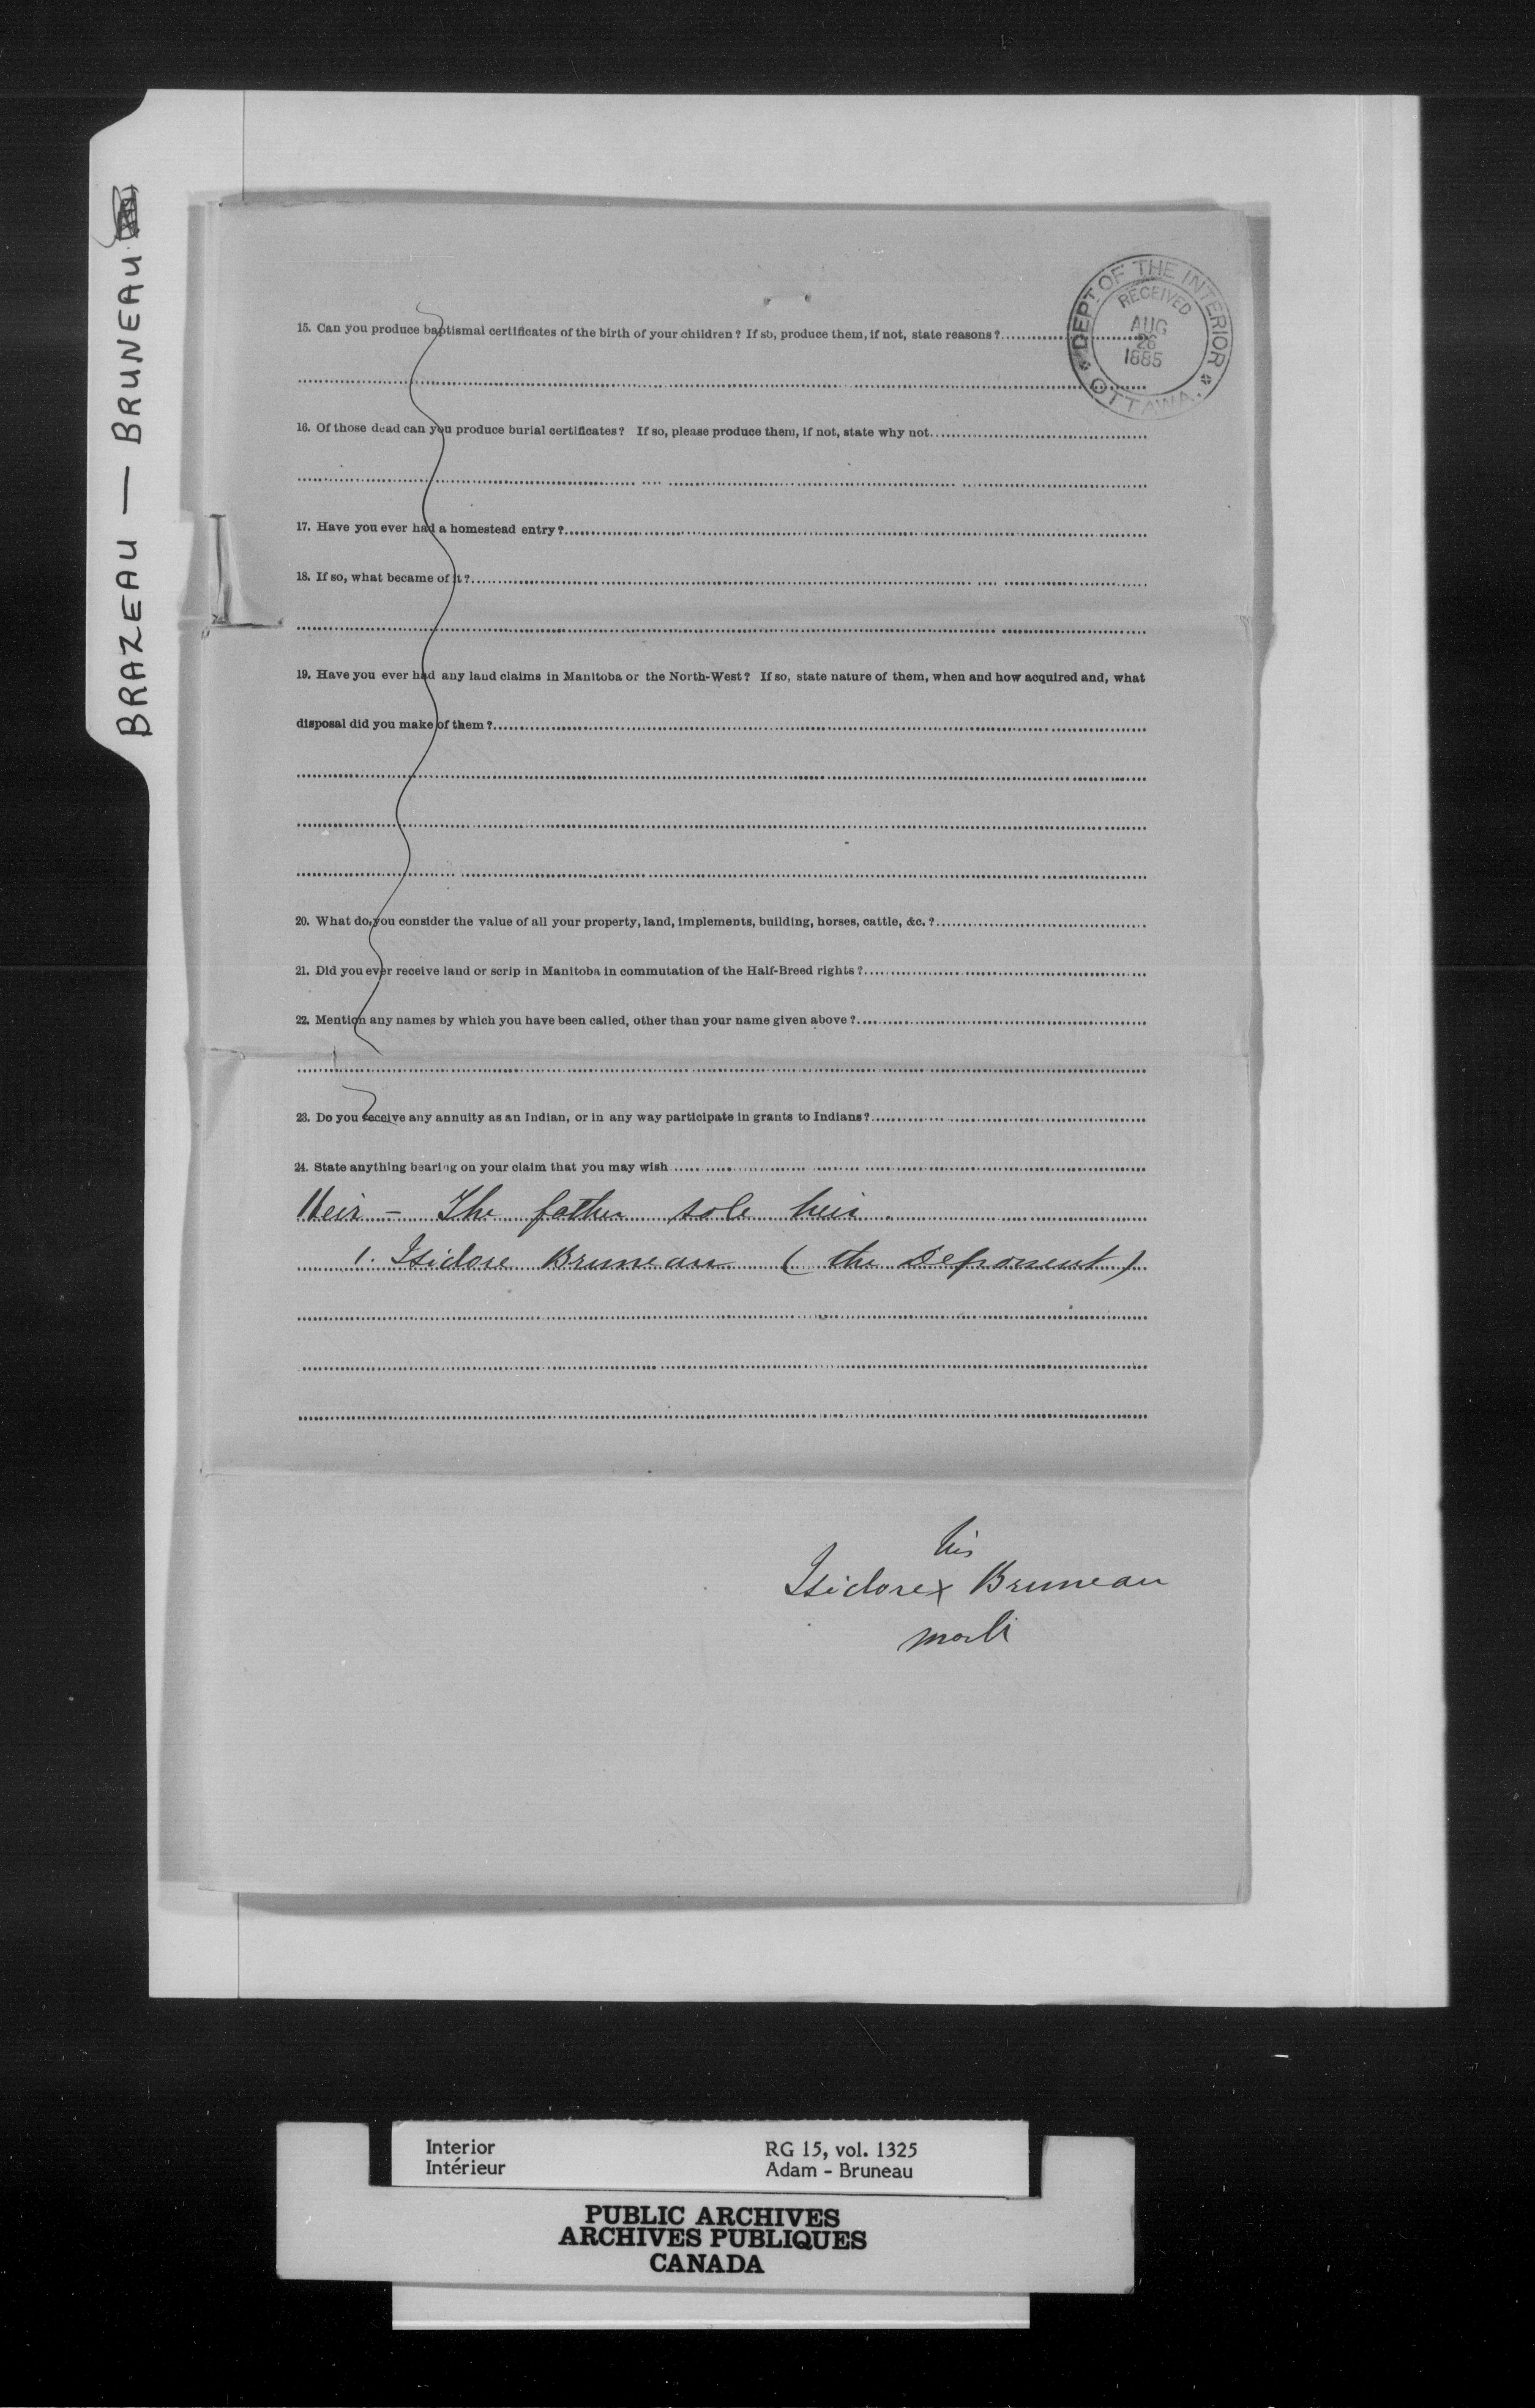 BRAZEAU — BRUNEAU
DEPT. OF THE INTERIOR
RECEIVED
AUG
26
1885
OTTAWA.
15. Can you produce baptismal certificates of the birth of your children? If so, produce them, if not, state reasons?
16. Of those dead can you produce burial certificates? If so, please produce them, if not, state why not
17. Have you ever had a homestead entry?
18. If so, what became of it?
19. Have you ever had any land claims in Manitoba or the North-West? If so, state nature of them, when and how acquired and, what
disposal did you make of them?
20. What do you consider the value of all your property, land, implements, building, horses, cattle, &c. ?
21. Did you ever receive land or scrip in Manitoba in commutation of the Half-Breed rights?
22. Mention any names by which you have been called, other than your name given above?
23. Do you receive any annuity as an Indian, or in any way participate in grants to Indians?
24. State anything bearing on your claim that you may wish
Heir – The father sole heir.
1. Isidore Bruneau (the Deponent)
his
Isidore x Bruneau
mark
Interior RG 15, vol. 1325
Intérieur Adam - Bruneau
PUBLIC ARCHIVES
ARCHIVES PUBLIQUES
CANADA